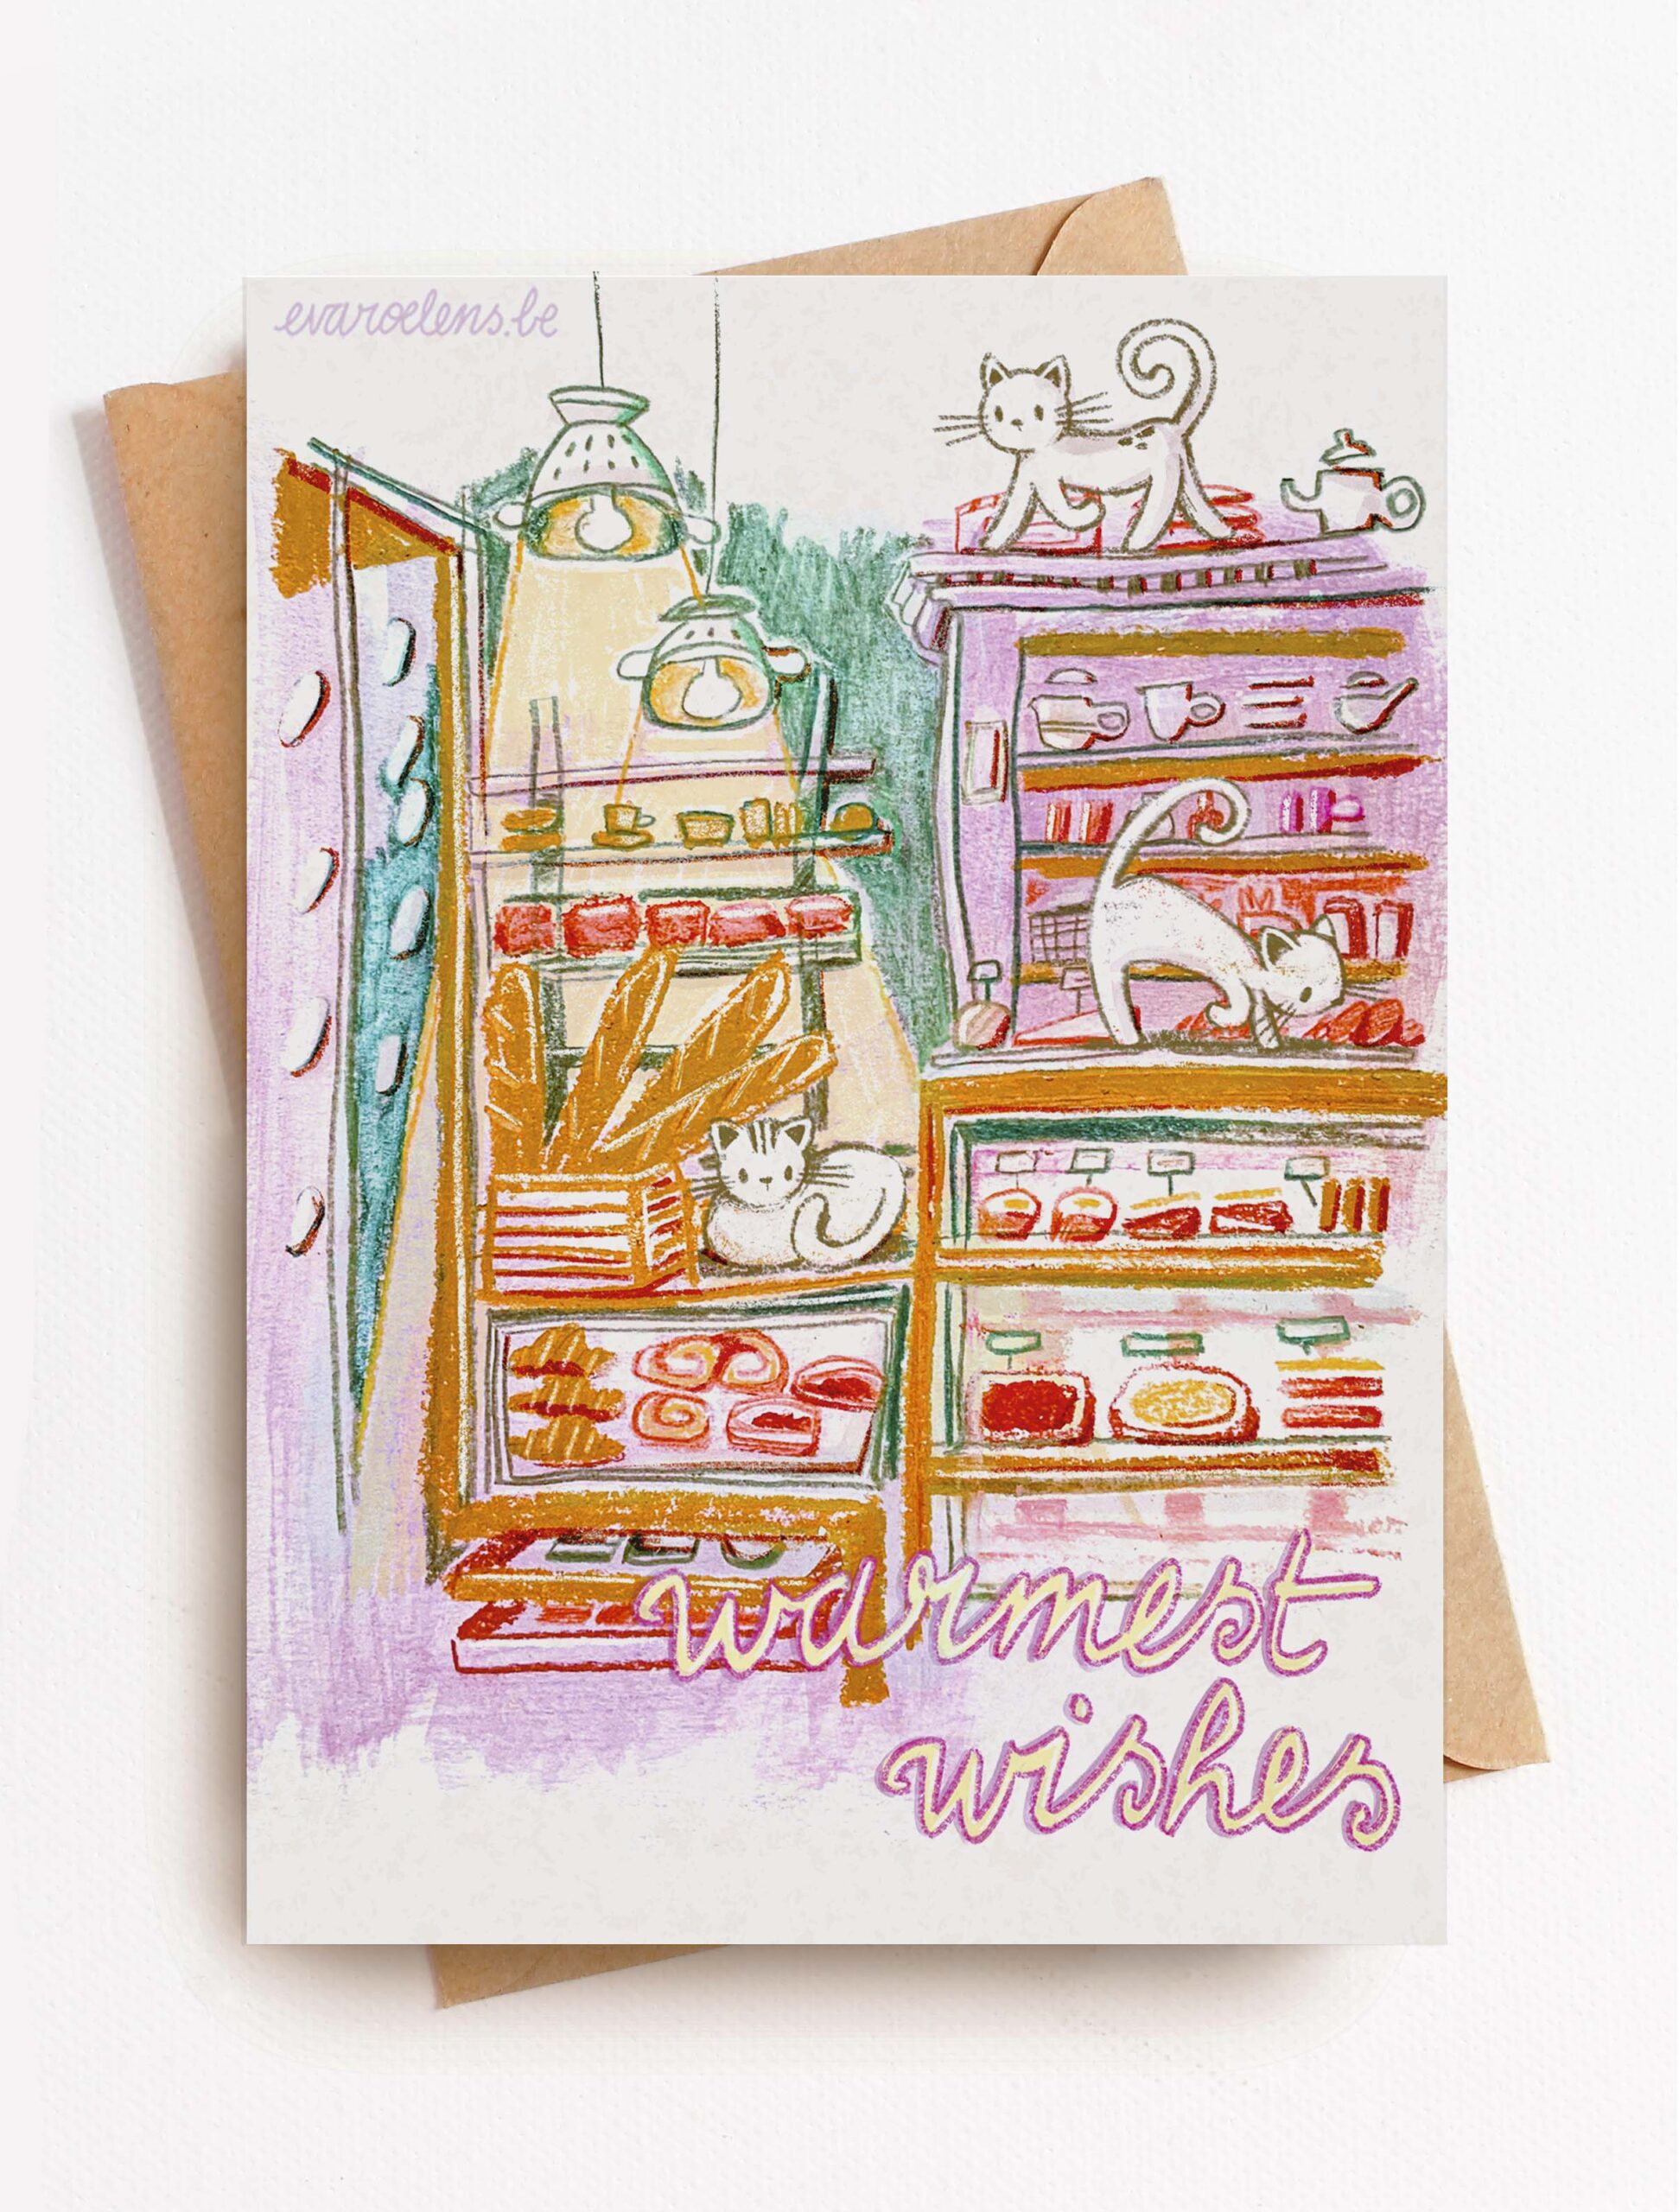 evaroelens.be
warmest
wishes